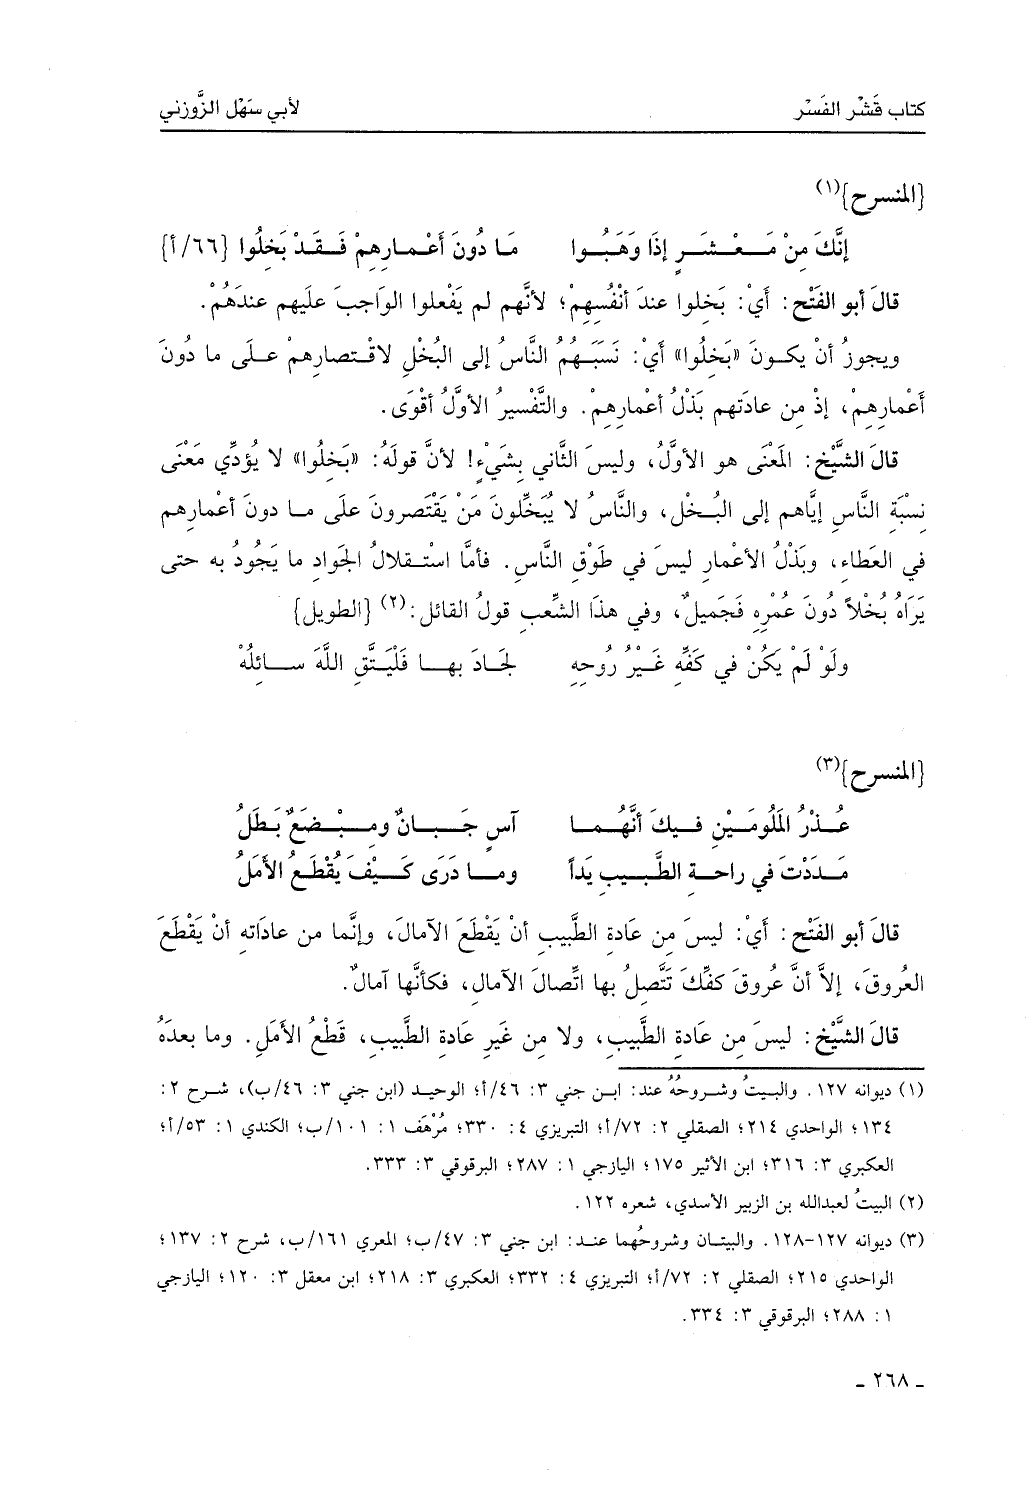 كتاب قَشْر الفَسْر لأبي سَهْل الزَّوْزني
[المنسرح](١)
إنَّكَ مِنْ مَعْشَرٍ إذَا وَهَبُوا مَا دُونَ أَعْمارِهِمْ فَقَدْ بَخِلُوا [٦٦/أ]
قالَ أبو الفَتْح: أيْ: بَخِلوا عندَ أنْفُسِهِمْ؛ لأنَّهم لم يَفْعلوا الوَاجبَ علَيهم عندَهُمْ.
ويجوزُ أنْ يكونَ «بَخِلُوا» أيْ: نَسَبَهُمُ النَّاسُ إلى البُخْلِ لاقْتصارِهِمْ علَى ما دُونَ
أَعْمارِهِمْ، إذْ مِن عادَتهم بَذْلُ أعْمارِهِمْ. والتَّفْسيرُ الأوَّلُ أقْوَى.
قالَ الشَّيْخ: المَعْنَى هو الأوَّلُ، وليسَ الثَّاني بِشَيْءٍ! لأنَّ قولَهُ: «بَخِلُوا» لا يُؤدِّي مَعْنَى
نِسْبَةِ النَّاسِ إيَّاهم إلى البُخل، والنَّاسُ لا يُبَخِّلونَ مَنْ يَقْتَصرونَ علَى ما دونَ أعْمارِهم
في العَطاء، وبَذْلُ الأعْمار ليسَ في طَوْقِ النَّاسِ. فأمَّا اسْتقلالُ الجَوادِ ما يَجُودُ به حتى
يَرَاهُ بُخْلاً دُونَ عُمْرِهِ فَجَميلٌ، وفي هذَا الشِّعبِ قولُ القائل:(٢) [الطويل]
ولَوْ لَمْ يَكُنْ في كَفِّهِ غَيْرُ رُوحِهِ لجَادَ بها فَلْيَتَّقِ اللَّهَ سائلُهْ
[المنسرح](٣)
عُذْرُ المَلُومَيْنِ فيكَ أنَّهُما آسٍ جَبانٌ ومِبْضَعٌ بَطَلُ
مَدَدْتَ في راحةِ الطَّبيبِ يَداً وما دَرَى كَيْفَ يُقْطَعُ الأَمَلُ
قالَ أبو الفَتْح: أَيْ: ليسَ مِن عَادةِ الطَّبيبِ أنْ يَقْطَعَ الآمالَ، وإنَّما من عاداتِه أنْ يَقْطَعَ
العُروقَ، إلاَّ أنَّ عُروقَ كفِّكَ تَتَّصلُ بها اتِّصالَ الآمالِ، فكأنَّها آمالٌ.
قالَ الشَّيْخ: ليسَ مِن عَادةِ الطَّبيبِ، ولا مِن غَيرِ عَادةِ الطَّبيبِ، قَطْعُ الأَمَلِ. وما بعدَهُ
(١) ديوانه ١٢٧. والبيتُ وشروحُهُ عند: ابن جني ٣: ٤٦/أ؛ الوحيد (ابن جني ٣: ٤٦/ب)، شرح ٢:
١٣٤؛ الواحدي ٢١٤؛ الصقلي ٢: ٧٢/أ؛ التبريزي ٤: ٣٣٠؛ مُرْهَف ١: ١٠١/ب؛ الكندي ١: ٥٣/أ؛
العكبري ٣: ٣١٦؛ ابن الأثير ١٧٥؛ اليازجي ١: ٢٨٧؛ البرقوقي ٣: ٣٣٣.
(٢) البيتُ لعبدالله بن الزبير الأسدي، شعره ١٢٢.
(٣) ديوانه ١٢٧-١٢٨. والبيتان وشروحُهما عند: ابن جني ٣: ٤٧/ب؛ المعري ١٦١/ب، شرح ٢: ١٣٧؛
الواحدي ٢١٥؛ الصقلي ٢: ٧٢/أ؛ التبريزي ٤: ٣٣٢؛ العكبري ٣: ٢١٨؛ ابن معقل ٣: ١٢٠؛ اليازجي
١: ٢٨٨؛ البرقوقي ٣: ٣٣٤.
ـ ٢٦٨ ـ